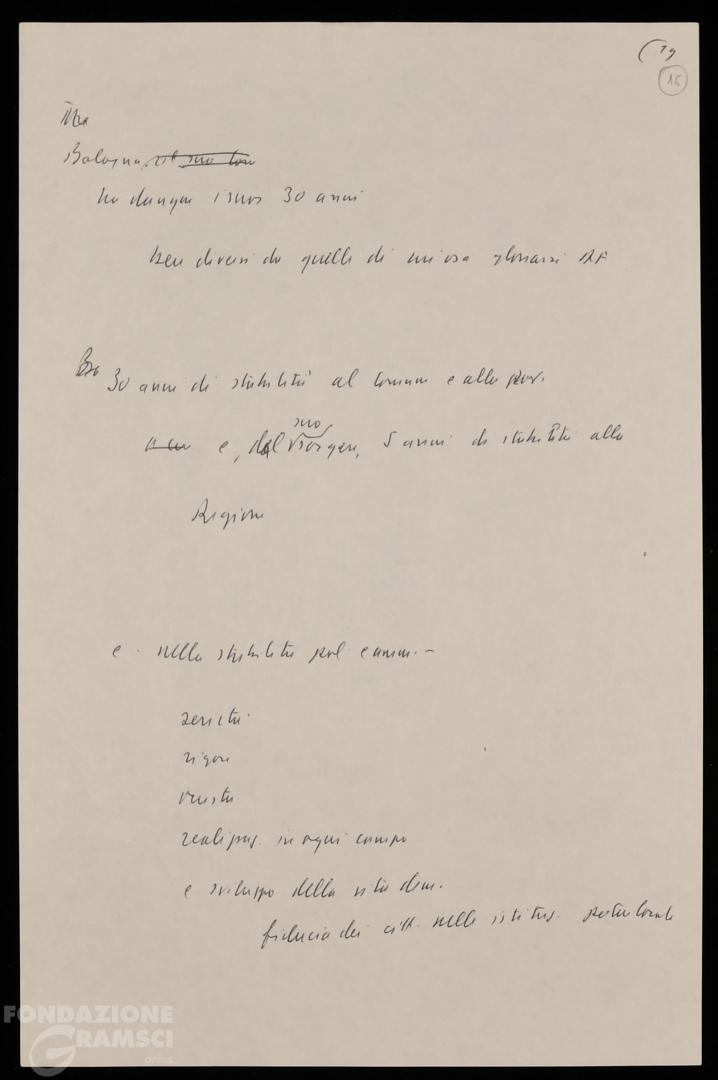 19
16
Ma
Bologna,
ha dunque i suoi 30 anni
ben diversi da quelli di
30 anni di stabilità al Comune e alla prov.
e, dal suo sorgere, 5 anni di stabilità alla
Regione
e - nella stabilità pol e amm. -
serietà
rigore
onestà
realizzaz. in ogni campo
e sviluppo della vita dem.
fiducia dei citt. nelle istituz.
FONDAZIONE
GRAMSCI
onlus